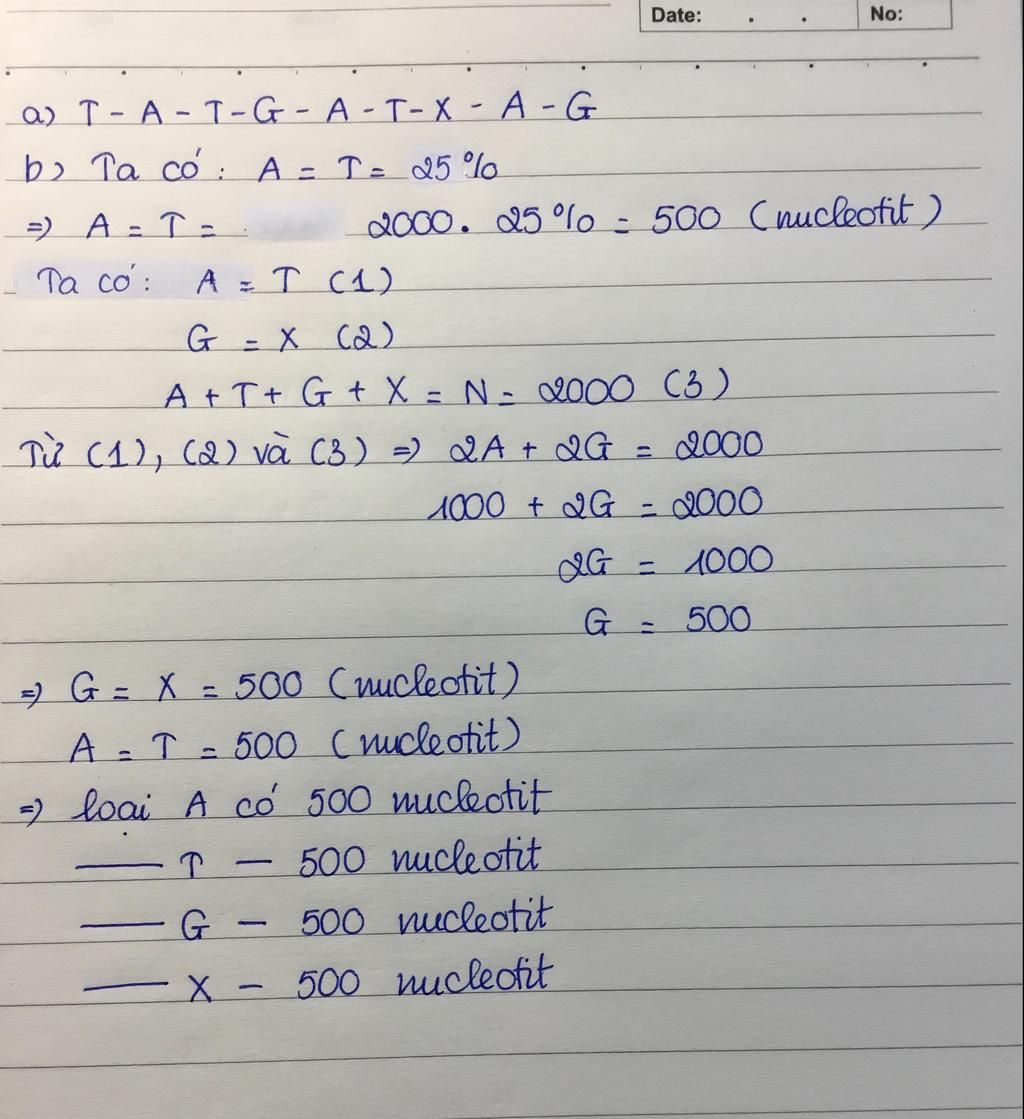 Date: . . No:
a) T - A - T - G - A - T - X - A - G
b) Ta có: A = T = 25%
=> A = T = 2000. 25% = 500 (nucleotit)
Ta có: A = T (1)
G = X (2)
A + T + G + X = N = 2000 (3)
Từ (1), (2) và (3) => 2A + 2G = 2000
1000 + 2G = 2000
2G = 1000
G = 500
=> G = X = 500 (nucleotit)
A = T = 500 (nucleotit)
=> loại A có 500 nucleotit
— T — 500 nucleotit
— G — 500 nucleotit
— X — 500 nucleotit